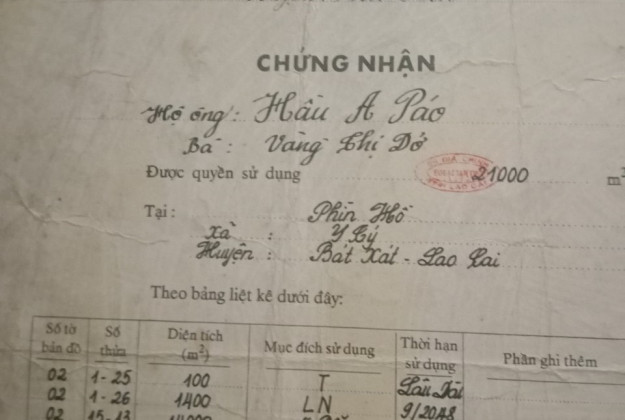 CHỨNG NHẬN
Hộ ông: Hầu A Páo
Bà: Vàng Thị Dở
Được quyền sử dụng 21000 m²
Tại: Phìn Hồ
xã: Y Tý
Huyện: Bát Xát - Lao Cai
Theo bảng liệt kê dưới đây:
Số tờ bản đồ Số thửa Diện tích (m²) Mục đích sử dụng Thời hạn sử dụng Phần ghi thêm
02 1-25 100 T Lâu Dài
02 1-26 1400 LN 9/2048
02 15-13